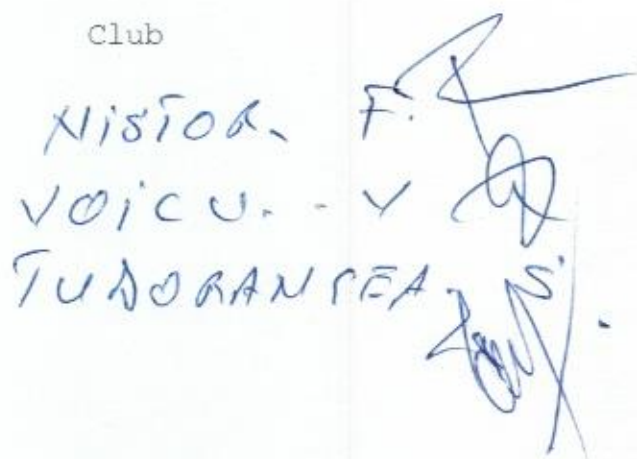 Club
NISTOR. F.
VOICU. - V
TUDORANCEA. S.